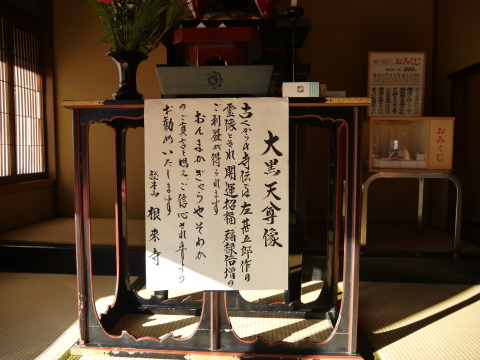 大黒天尊像
古くからの寺伝では左甚五郎作の
霊像とされ開運招福福禄倍増の
ご利益が得られます
おんまかぎゃらやそわか
のご真言を唱えご信心されますよう
お勧めいたします
総本山 根来寺
おみくじ
おみくじ